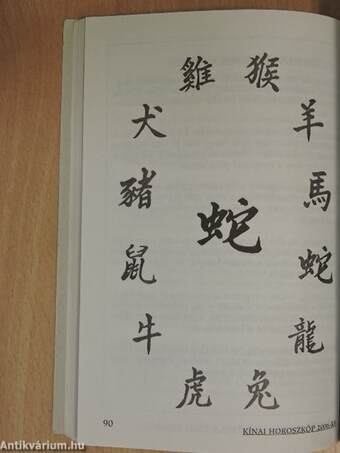 雞 猴
犬 羊
豬 馬
蛇
鼠 蛇
牛 龍
虎 兔
90 KÍNAI HOROSZKÓP
Antikvárium.hu